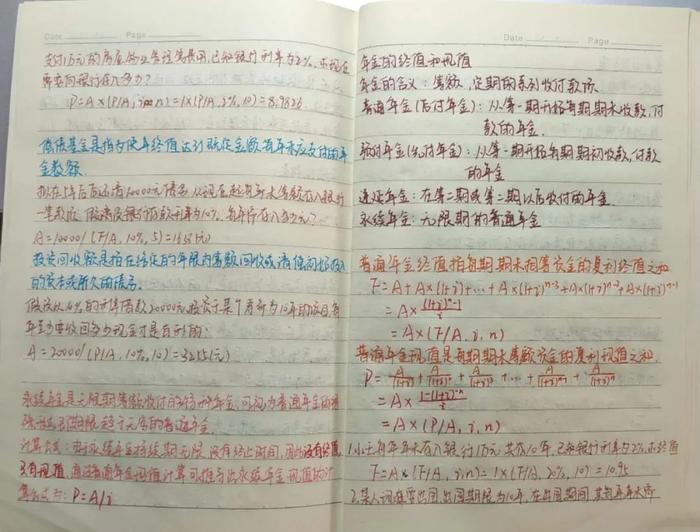 Date Page
支付1万元的房屋物业等运营费用,已知银行利率为2%,求现金
需要向银行存入多少?
P=A×(P/A,i,n)=1×(P/A,2%,10)=8.9826
偿债基金是指为使年终值达到既定金额每年末应支付的年
金数额.
拟在5年后还清10000元债务,从现在起每年末等额存入银行
一笔款项.假设银行存款利率为10%,每年需存入多少元?
A=10000/(F/A,10%,5)=1638(元)
投资回收额是指在给定的年限内等额回收或清偿初始投入
的资本或所欠的债务.
假设以10%的利率借款20000元,投资于某个寿命为10年的项目,每
年至少要收回多少现金才是有利的:
A=20000/(P/A,10%,10)=3255(元)
永续年金是无限期等额收付的特种年金,可视为普通年金的特
殊形式,即期限趋于无穷的普通年金.
计算公式:由于永续年金持续期无限,没有终止时间,因此没有终值,
只有现值,通过普通年金现值计算可推导出永续年金现值的计
算公式为:P=A/i
Date Page
年金的终值和现值
年金的含义:等额、定期的系列收付款项.
普通年金(后付年金):从第一期开始每期期末收款、付
款的年金.
预付年金(先付年金):从第一期开始每期期初收款、付款
的年金
递延年金:在第二期或第二期以后收付的年金
永续年金:无限期的普通年金
普通年金终值指每期期末相等资金的复利终值之和
F=A+A×(1+i)+…+A×(1+i)ⁿ⁻³+A×(1+i)ⁿ⁻²+A×(1+i)ⁿ⁻¹
=A×((1+i)ⁿ-1)/i
=A×(F/A,i,n)
普通年金现值是每期期末等额资金的复利现值之和.
P=A/(1+i)+A/(1+i)²+A/(1+i)³+…+A/(1+i)ⁿ⁻¹+A/(1+i)ⁿ
=A×(1-(1+i)⁻ⁿ)/i
=A×(P/A,i,n)
1.小王每年年末存入银行1万元,共存10年,已知银行利率为2%,求终值
F=A×(F/A,i,n)=1×(F/A,2%,10)=10.95
2.某人拟在出国,出国期限为10年,在出国期间,其每年年末需